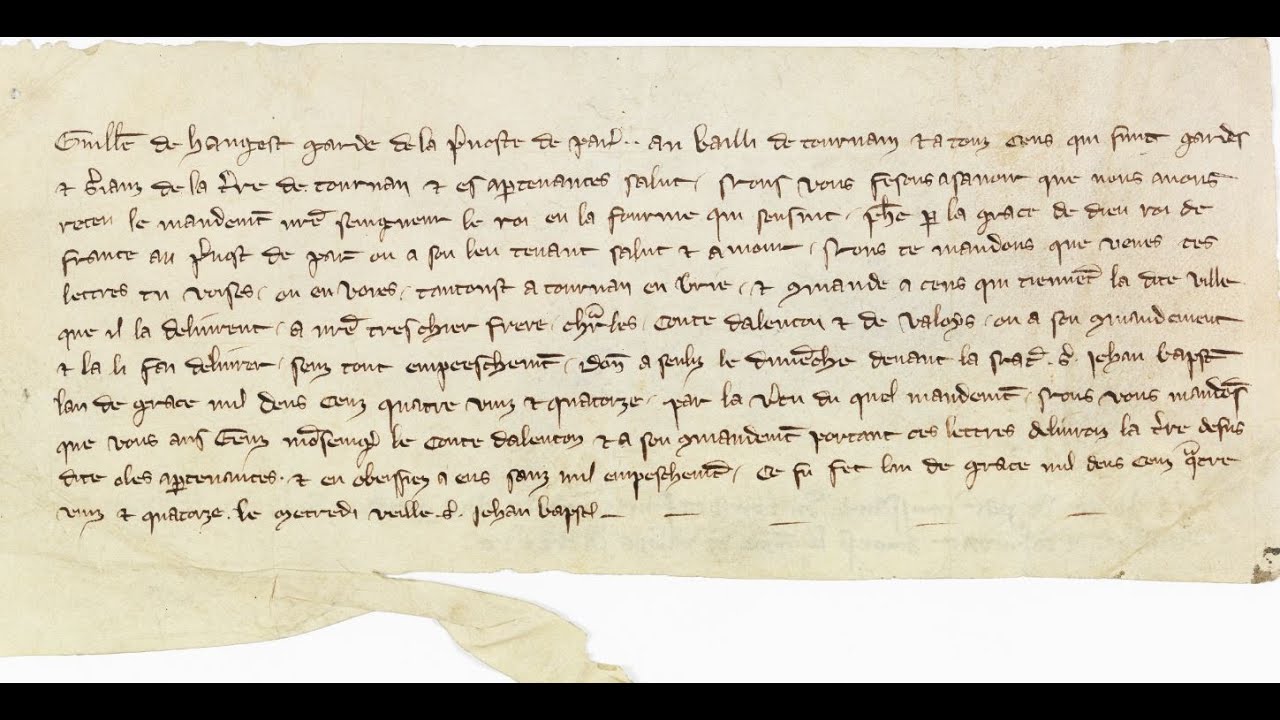 Guill̄e de hangest garde de la p̄uoste de par̄ .. au bailli de tournam et a touz ceus qui sunt gardes
et s̄ianz de la t̄re de tournan et es apartenances salut . Nous vous fesons asauoir que nous auons
receu le mandem̄t nr̄e seingneur le roi en la fourme qui sensuit . Ph̄e p la grace de dieu roi de
france au p̄uost de par̄ ou a son leu tenant salut et amour . Nous te mandons que veues ces
lettres tu voises . ou enuoies . tantoust a tournan en brie . et mande a ceus qui tienne̅t la dite ville
que il la deliurent . a nr̄e tres chier frere . charles . conte dalencon et de valoys . ou a son mandement
et la li fai deliurer . senz tout empeeschem̄t . Don̄ a senliz le dime̅che deuant la . s̄ . iehan bapst̄
lan de grace mil deus cenz quatre vinz et quatorze . par la v̄tu du quel mandem̄t . Nous vous mando̅s
que vous aus genz mo̅seing̅ le conte dalencon et a son mandem̄t portant ces lettres deliurez la t̄re desus
dite o les apartenances . et en obeissiez a eus sanz nul empeschem̄t . Ce fu fet lan de grace mil deus cenz q̄tre
vinz et quatorze . le mecredi veille . s̄ . iehan bapst̄